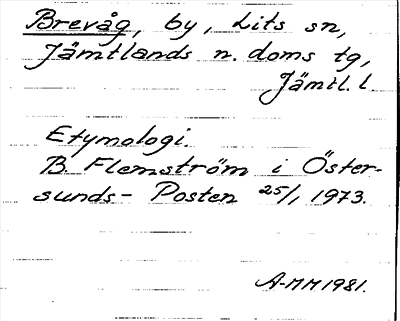 Brevåg, by, Lits sn,
Jämtlands n. doms tg,
Jämtl. l.
Etymologi.
B. Flemström i Öster-
sunds-Posten 25/1 1973.
A-MM 1981.